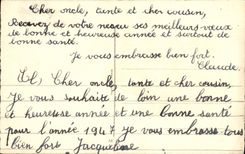 Cher oncle, tante et cher cousin,
Recevez de votre neveu ses meilleurs vœux
de bonne et heureuse année et surtout de
bonne santé.
Je vous embrasse bien fort.
Claude.
Cher oncle, tante et cher cousin,
Je vous souhaite de loin une bonne
et heureuse année et une bonne santé
pour l'année 1947 je vous embrasse tous
bien fort Jacqueline